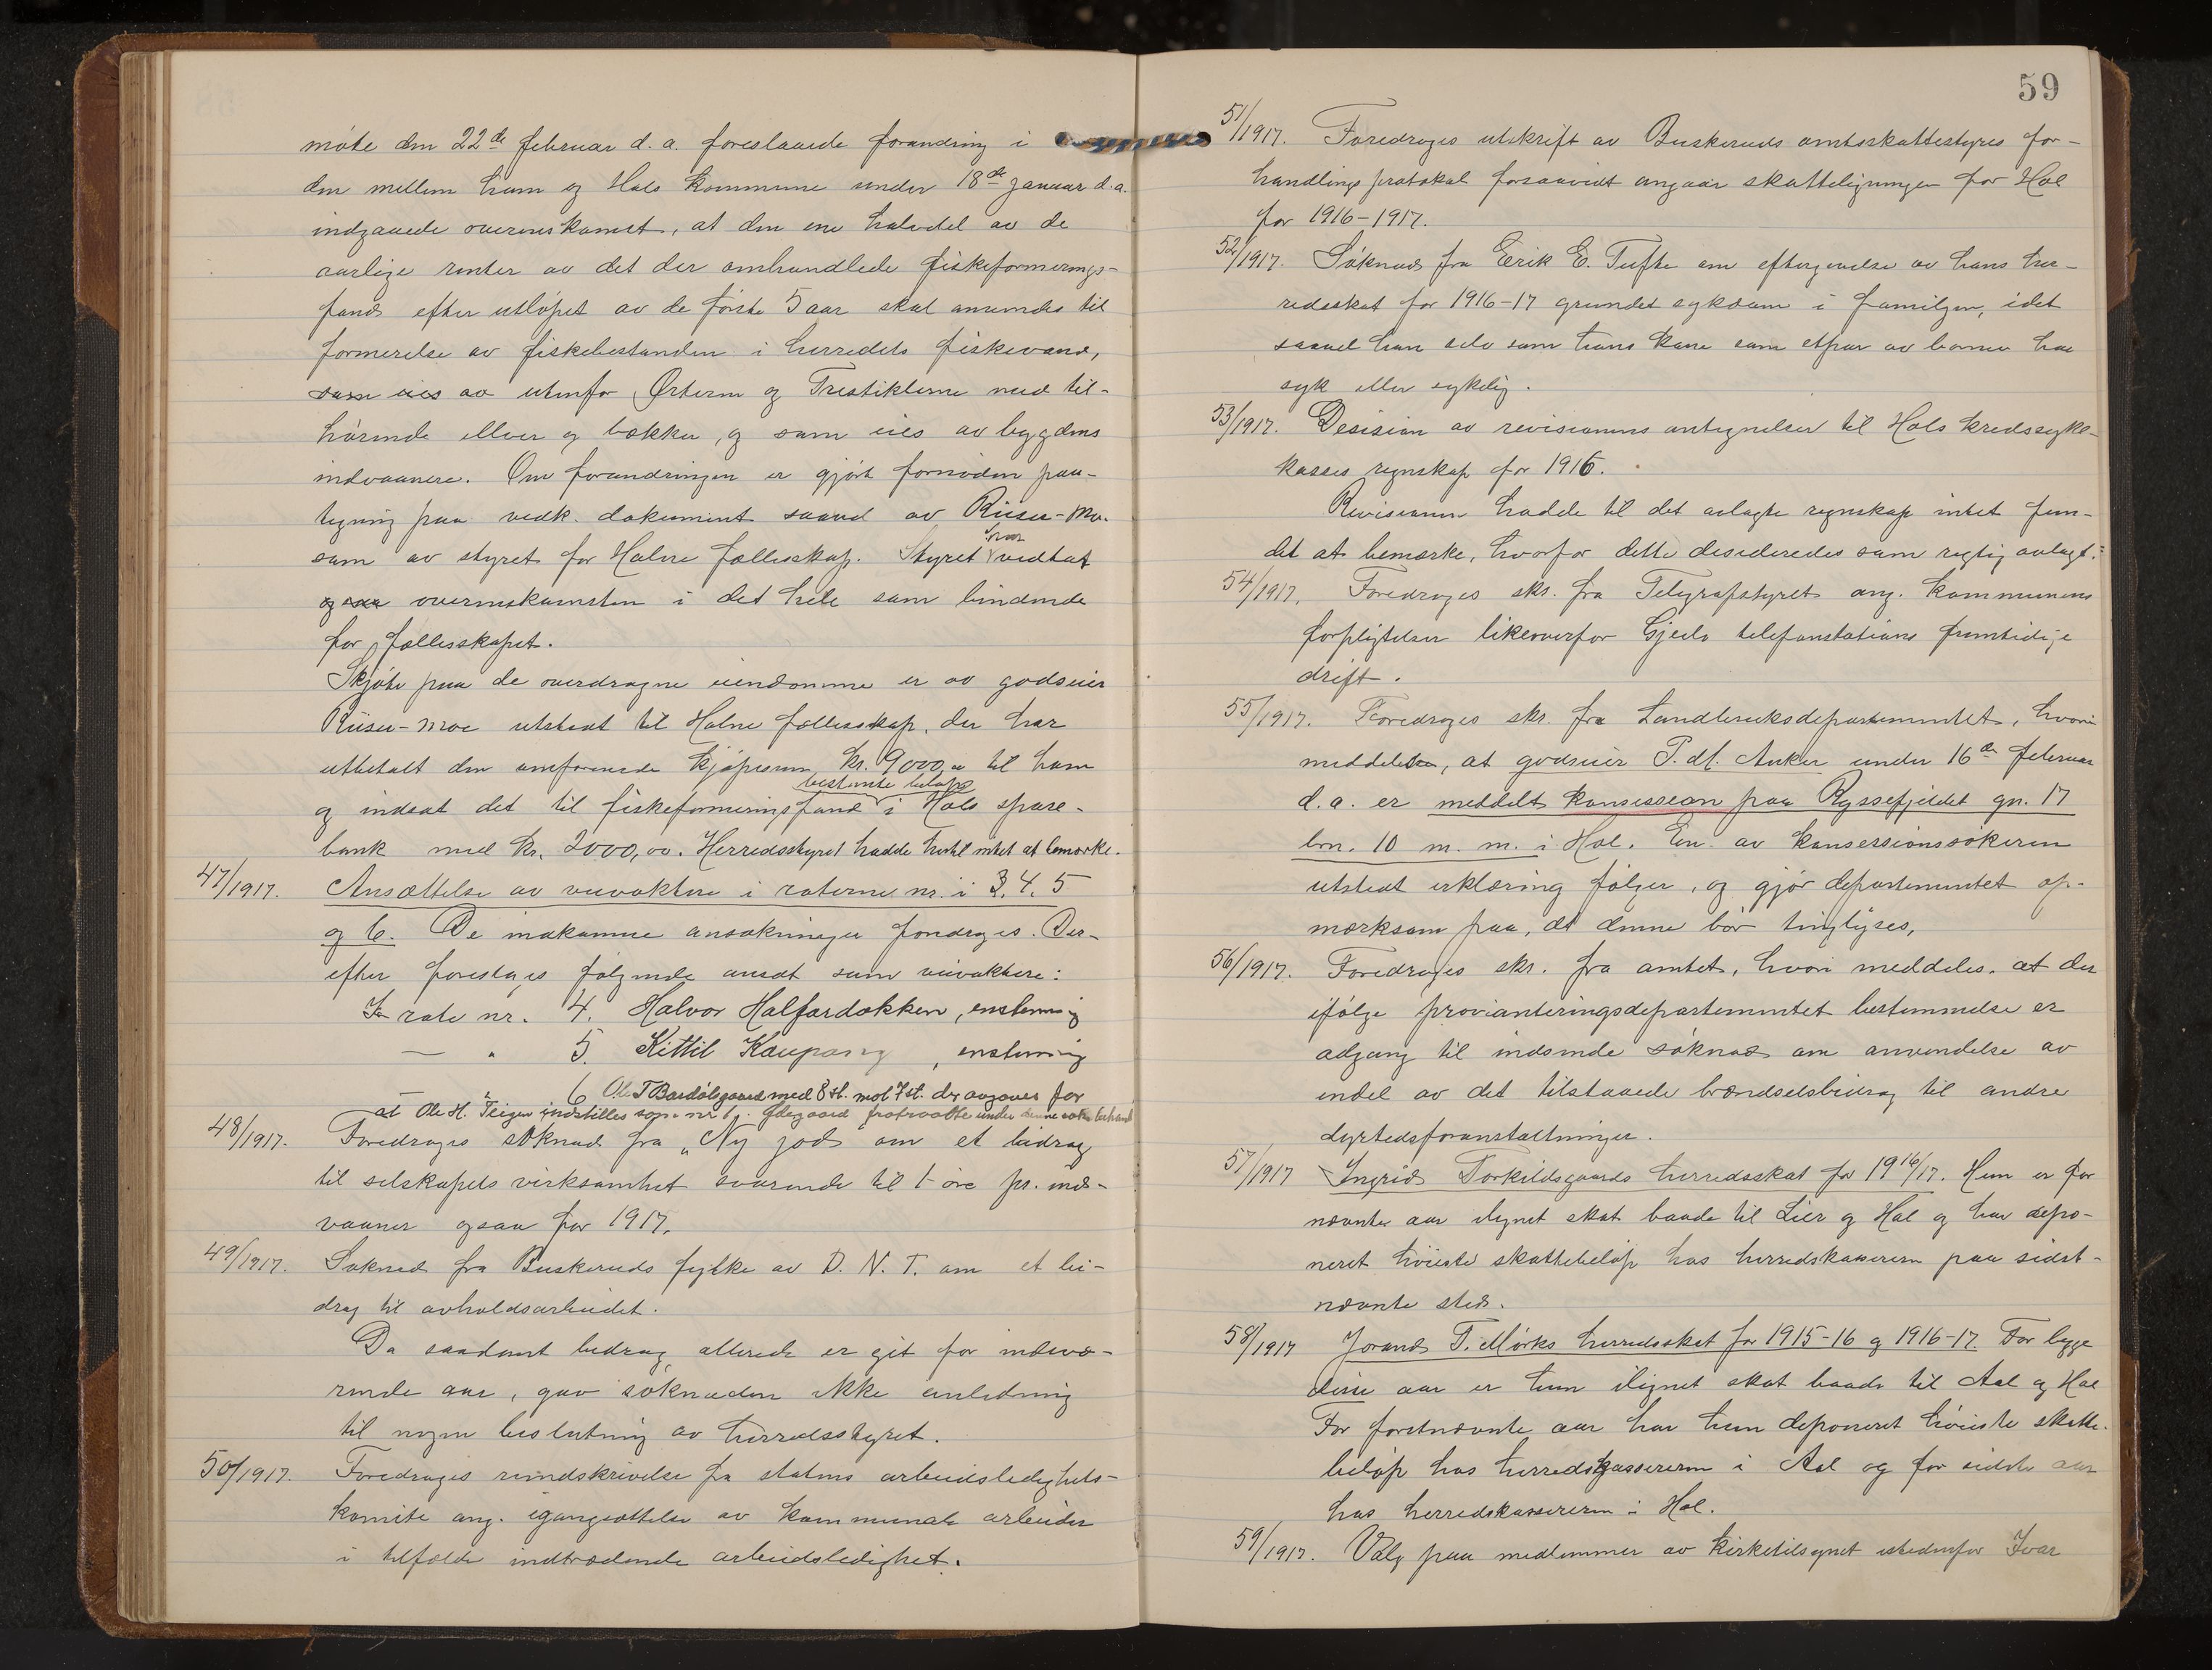 møte den 22de februar d. a. foreslaaede forandring i
den mellem ham og Hols kommune under 18de januar d.a.
indgaaede overenskomst, at den ene halvdel av de
aarlige renter av det der omhandlede fiskeformerings-
fond efter utløpet av de første 5 aar skal anvendes til
formerelse av fiskebestanden i herredets fiskevand,
som eies av utenfor Ørteren og Trestiklerne med til-
hørende elver og bække, og som eies av bygdens
indvaanere. Om forandringen er gjørt fornøden paa-
tegning paa vedk. dokument saavel av Riiser-Moe
som av styret for Halne fællesskap. Styret har vedtat
overenskomsten i det hele som bindende
for fællesskapet.
Skjøte paa de overdragne eiendomme er av godseier
Riiser-Moe utstedt til Halne fællesskap, der har
utbetalt den omforenede kjøpesum kr. 9000,00 til ham
bestemte beløp
og indsat det til fiskeformeringsfond i Hols spare-
bank med kr. 2000,00. Herredsstyret hadde hertil intet at bemærke.
47/1917. Ansættelse av veivoktere i roterne nr. i 3. 4. 5
og 6. De inkomne ansøkninger foredroges. Der-
efter foresloges følgende ansat som veivoktere:
I rote nr. 4. Halvor Halfardokken, enstemmig
— " 5. Kittil Kaupang, enstemmig
— " 6 Ole T Bardølsgaard med 8 st. mot 7 st. der avgaves for
at Ole H. Teigen indstilles som nr 1. fratraadte under denne saks behand
48/1917. Foredroges søknad fra „Ny jord" om et bidrag
til selskapets virksomhet svarende til 1 øre pr. ind-
vaaner ogsaa for 1917.
49/1917. Søknad fra Buskeruds fylke av D. N. T. om et bi-
drag til avholdsarbeidet.
Da saadant bidrag allerede er git for indevæ-
rende aar, gav søknaden ikke anledning
til nogen beslutning av herredsstyret.
50/1917. Foredroges rundskrivelse fra statens arbeidsledighets-
komite ang. igangsættelse av kommunale arbeider
i tilfælde indtrædende arbeidsledighet.
59
51/1917. Foredroges utskrift av Buskeruds amtsskattestyres for-
handlingsprotokol forsaavidt angaar skatteligningen for Hol
for 1916-1917.
52/1917. Søknad fra Erik E. Tufte om eftergivelse av hans her-
redsskat for 1916-17 grundet sykdom i familjen, idet
saavel han selv som hans kone som etpar av barnene har
syk eller sykelig.
53/1917. Desision av revisionens antegnelser til Hols kredssyke-
kasses regnskap for 1916.
Revisionen hadde til det avlagte regnskap intet fun-
det at bemærke, hvorfor dette desideredes som rigtig avlagt.
54/1917. Foredroges skr. fra Telegrafstyret ang. kommunens
forpligtelser likeoverfor Gjeilo telefonstations fremtidige
drift.
55/1917. Foredroges skr. fra Landbruksdepartementet, hvori
meddeles, at godseier P. M. Anker under 16de februar
d.a. er meddelt konsession paa Ryssefjeldet gn. 17
brn. 10 m. m. i Hol. En av konsessionssøkeren
utstedt erklæring følger, og gjør departementet op-
mærksom paa, at denne bør tinglyses.
56/1917. Foredroges skr. fra amtet, hvori meddeles, at der
ifølge provianteringsdepartementet bestemmelse er
adgang til indsende søknad om anvendelse av
endel av det tilstaaede brændselsbidrag til andre
dyrtidsforanstaltninger.
57/1917 Ingrid Torkildsgaards herredsskat for 1916/17. Hun er for
nævnte aar ilignet skat baade til Lier og Hol og har depo-
neret høieste skattebeløp hos herredskassereren paa sidst-
nævnte sted.
58/1917 Jorand T. Mørks herredsskat for 1915-16 og 1916-17. For begge
disse aar er hun ilignet skat baade til Aal og Hol
For førstnævnte aar har hun deponeret høieste skatte-
beløp hos herredskassereren i Aal og for sidste aar
hos herredskassereren i Hol.
59/1917. Valg paa medlemmer av kirketilsynet istedenfor Ivar